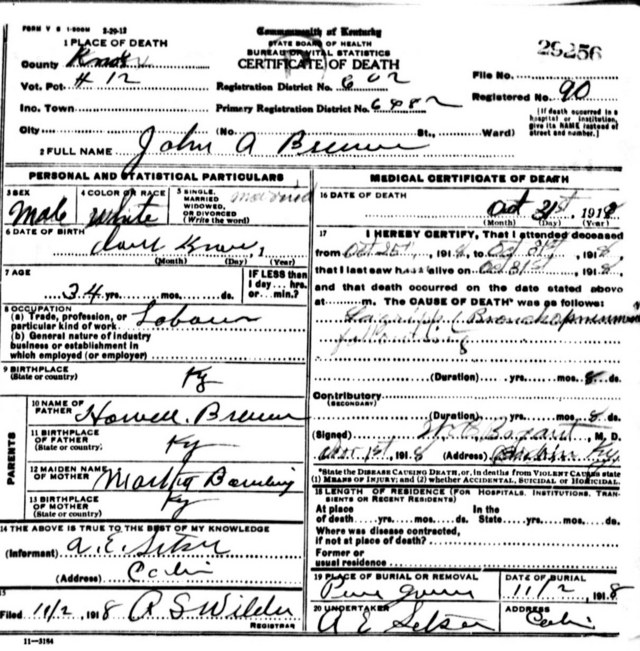 FORM V S 1-500M 3-29-12
Commonwealth of Kentucky
STATE BOARD OF HEALTH
BUREAU OF VITAL STATISTICS
CERTIFICATE OF DEATH
29256
1 PLACE OF DEATH
County Knox
Vot. Pct. #12
Registration District No. 602
File No.
Inc. Town
Primary Registration District No. 6482
Registered No. 90
City (No. St., Ward)
[If death occurred in a hospital or institution, give its NAME instead of street and number.]
2 FULL NAME John A
PERSONAL AND STATISTICAL PARTICULARS
3 SEX Male
4 COLOR OR RACE White
5 SINGLE, MARRIED WIDOWED, OR DIVORCED (Write the word) married
6 DATE OF BIRTH Dont Know, 1
(Month) (Day) (Year)
7 AGE 34 yrs. mos. ds.
IF LESS than 1 day... hrs. or... min.?
8 OCCUPATION
(a) Trade, profession, or particular kind of work Labour
(b) General nature of industry business or establishment in which employed (or employer)
9 BIRTHPLACE (State or country) Ky
PARENTS
10 NAME OF FATHER Howell
11 BIRTHPLACE OF FATHER (State or country) Ky
12 MAIDEN NAME OF MOTHER Martha Bowling
13 BIRTHPLACE OF MOTHER (State or country) Ky
14 THE ABOVE IS TRUE TO THE BEST OF MY KNOWLEDGE
(Informant) A. E. Setser
(Address)
15
Filed 11/2 1918 R S Wilder
REGISTRAR
11-3184
MEDICAL CERTIFICATE OF DEATH
16 DATE OF DEATH Oct 31st, 1918
(Month) (Day) (Year)
17 I HEREBY CERTIFY, That I attended deceased
from Oct 25th, 1918 to Oct 31st, 1918
that I last saw him alive on Oct 31st, 1918,
and that death occurred on the date stated above
at m. The CAUSE OF DEATH* was as follows:
Lagrippe Bronchopneumonia
following
(Duration) yrs. mos. 8 ds.
Contributory (SECONDARY)
(Duration) yrs. mos. 8 ds.
(Signed) M. D.
Nov 1st, 1918 (Address) Ky.
*State the DISEASE CAUSING DEATH, or, in deaths from VIOLENT CAUSES state (1) MEANS OF INJURY; and (2) whether ACCIDENTAL, SUICIDAL or HOMICIDAL.
18 LENGTH OF RESIDENCE (FOR HOSPITALS, INSTITUTIONS, TRANSIENTS OR RECENT RESIDENTS)
At place of death yrs. mos. ds. In the State yrs. mos. ds.
Where was disease contracted, if not at place of death?
Former or usual residence
19 PLACE OF BURIAL OR REMOVAL
DATE OF BURIAL 11/2, 1918
20 UNDERTAKER A E Setser
ADDRESS